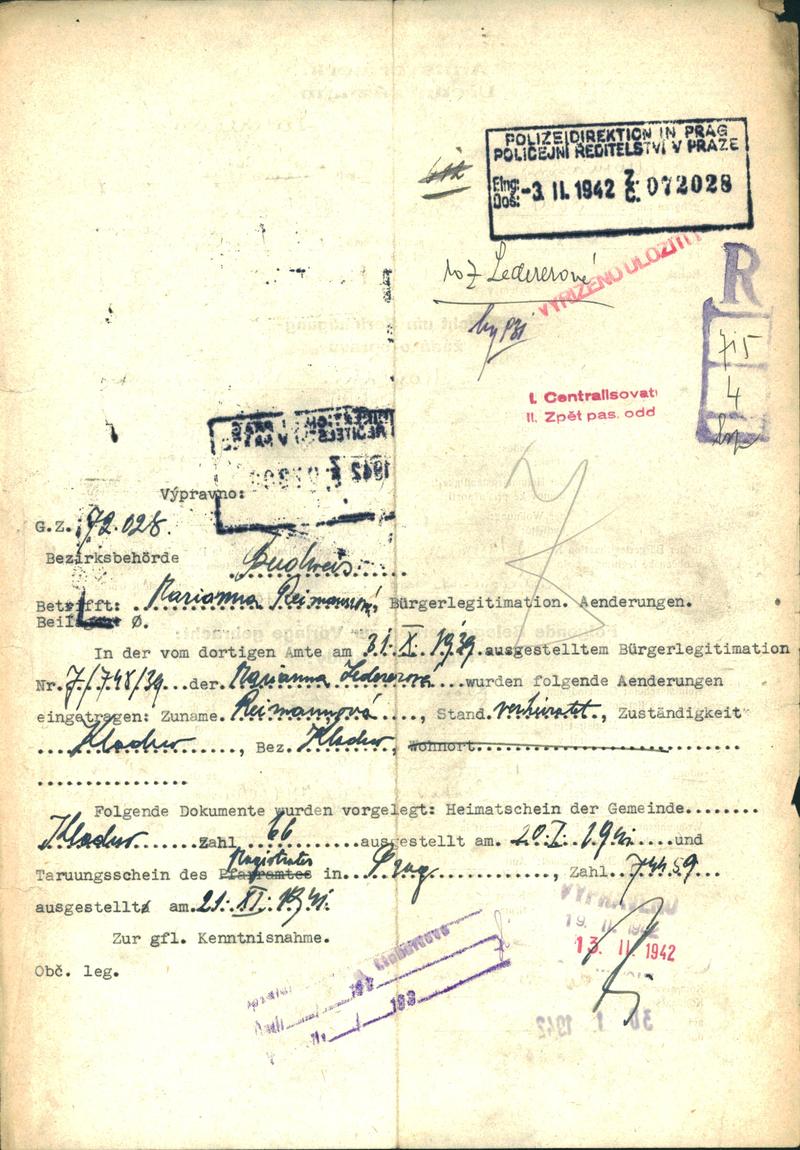 POLIZEIDIREKTION IN PRAG
POLICEJNÍ ŘEDITELSTVÍ V PRAZE
Eing:
Doš: -3. II. 1942 Z. Č. 072028
roz Ledererové
VYŘÍZENO ULOŽITI
R
715
4
I. Centralisovati
II. Zpět pas. odd
Výpravno:
G.Z. 72.028.
Bezirksbehörde Budweis
Betrifft: Marianna Reimannová, Bürgerlegitimation. Aenderungen.
Beilagen Ø.
In der vom dortigen Amte am 31. X. 1939 ausgestelltem Bürgerlegitimation
Nr. 7/748/39 der Marianna Ledererová wurden folgende Aenderungen
eingetragen: Zuname Reimannová, Stand verheiratet, Zuständigkeit
Kladno, Bez. Kladno, Wohnort
Folgende Dokumente wurden vorgelegt: Heimatschein der Gemeinde
Kladno Zahl 66 ausgestellt am 20. I. 1941 und
Magistrates
Taruungsschein des Pfarramtes in Prag, Zahl 74459
ausgestellt am 21. XI. 1941.
Zur gfl. Kenntnisnahme.
13. II. 1942
Obč. leg.
193
193
30 I 1942